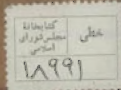 کتابخانهٔ
مجلس شورای
اسلامی
خطی
۱۸۹۹۱